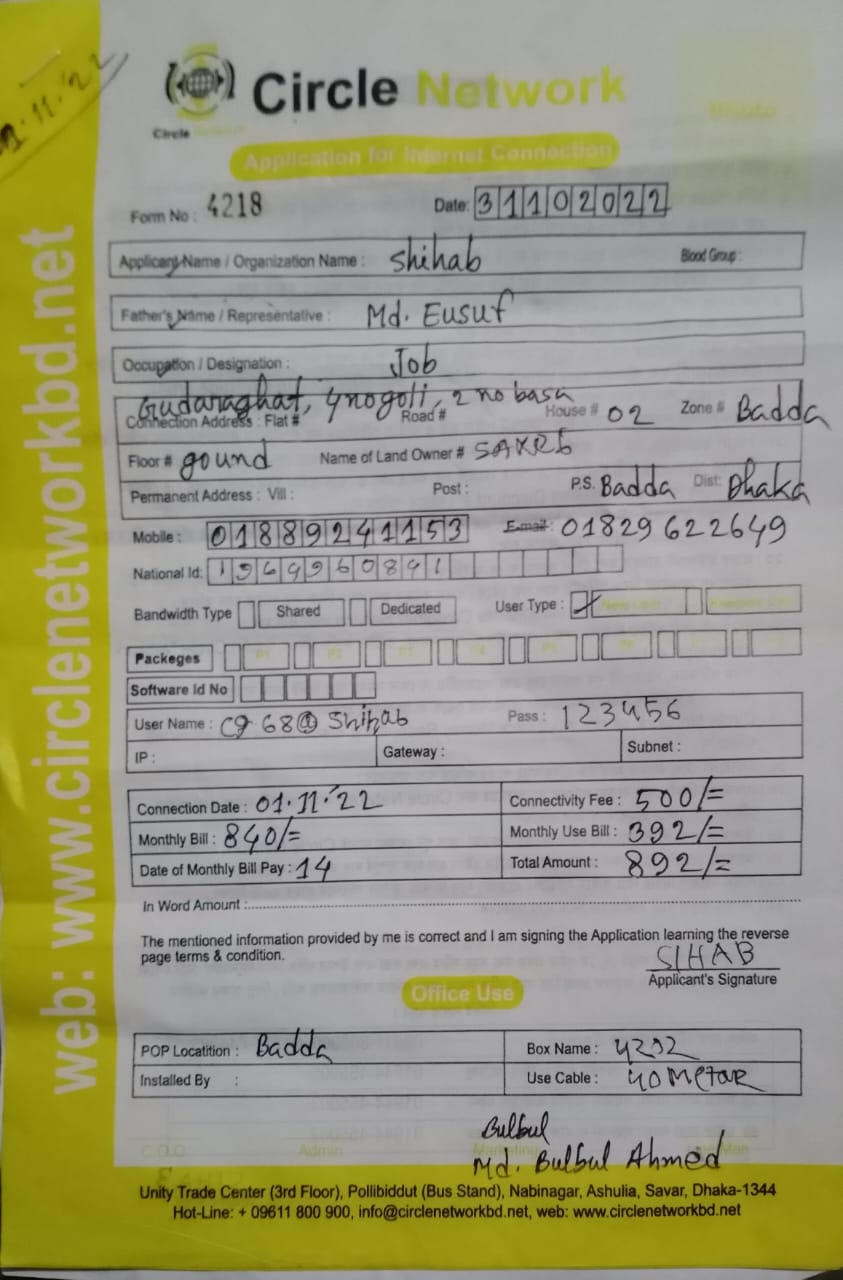 Circle Network
Circle
Application for Internet Connection
Form No : 4218 Date: 31102022
Applicant Name / Organization Name : Shihab Blood Group :
Father's Name / Representative : Md. Eusuf
Occupation / Designation : Job
Gudaraghat, 4 no goli, 2 no basa
Connection Address : Flat # Road # House # 02 Zone # Badda
Floor # gound Name of Land Owner #
Permanent Address : Vill : Post : P.S. Badda Dist: Dhaka
Mobile : 01889241153 Email: 01829622649
National Id: 1969960891
Bandwidth Type Shared Dedicated User Type :
Packeges
Software Id No
User Name : Shihab Pass : 123456
IP : Gateway : Subnet :
Connection Date : 01.11.'22 Connectivity Fee : 500/=
Monthly Bill : 840/= Monthly Use Bill : 392/=
Date of Monthly Bill Pay : 14 Total Amount : 892/=
In Word Amount :
The mentioned information provided by me is correct and I am signing the Application learning the reverse
page terms & condition.
SIHAB
Applicant's Signature
Office Use
POP Locatition : Badda Box Name : 4202
Installed By : Use Cable : 40 Metar
Bulbul
C.O.O Admin
Md. Bulbul Ahmed
Unity Trade Center (3rd Floor), Pollibiddut (Bus Stand), Nabinagar, Ashulia, Savar, Dhaka-1344
Hot-Line: + 09611 800 900, info@circlenetworkbd.net, web: www.circlenetworkbd.net
web: www.circlenetworkbd.net